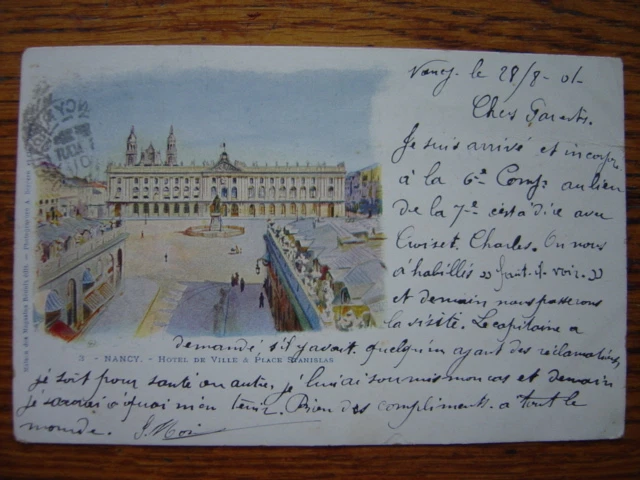 Nancy. le 28/8-01-
Chers Parents.
Je suis arrivé et incorporé
à la 6e Comp. au lieu
de la 7e c'est à dire avec
Croiset, Charles. On nous
à habillés
et demain nous passerons
la visite. Le capitaine a
demandé s'il y avait quelqu'un ayant des réclamations
je soit pour santé ou autre, je lui ai soumis mon cas et demain
je saurai à quoi m'en tenir. Bien des compliments à tout le
monde.
3 - NANCY. - HOTEL DE VILLE & PLACE STANISLAS
NANCY